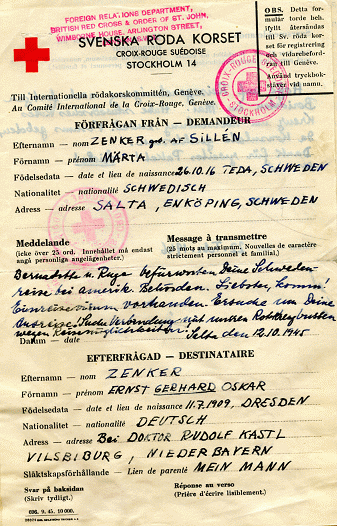 FOREIGN RELATIONS DEPARTMENT,
BRITISH RED CROSS & ORDER OF ST. JOHN,
WIMBORNE HOUSE, ARLINGTON STREET,
SVENSKA RÖDA KORSET
CROIX-ROUGE SUÉDOISE
STOCKHOLM 14
OBS. Detta formulär torde helt ifyllt återsändas till Sv. röda korset för registrering och vidarebefordran till Genève.
Använd tryckbokstäver vid namn.
CROIX-ROUGE SUÉDOISE
STOCKHOLM
Till Internationella rödakorskommittén, Genève.
Au Comité International de la Croix-Rouge, Genève.
FÖRFRÅGAN FRÅN – DEMANDEUR
Efternamn – nom ZENKER geb. AF SILLÉN
Förnamn – prénom MÄRTA
Födelsedata – date et lieu de naissance 26.10.16 TEDA, SCHWEDEN
Nationalitet – nationalité SCHWEDISCH
Adress – adresse SALTA, ENKÖPING, SCHWEDEN
Meddelande
(icke över 25 ord. Innehållet må endast angå personliga angelägenheter.)
Message à transmettre
(25 mots au maximum. Nouvelles de caractère strictement personnel et familial.)
Bernadotte u. Ryge befürworten Deine Schweden-
reise bei amerik. Behörden. Liebster, komm!
Einreisevisum vorhanden. Ersuche um Deine
Ausreise. Suche Verbindung mit unsren Rotkreuzbussen
wegen Heimmöglichkeiten!
Datum – date Salta den 12.10.1945
EFTERFRÅGAD – DESTINATAIRE
Efternamn – nom ZENKER
Förnamn – prénom ERNST GERHARD OSKAR
Födelsedata – date et lieu de naissance 11.7.1909, DRESDEN
Nationalitet – nationalité DEUTSCH
Adress – adresse Bei DOKTOR RUDOLF KASTL
VILSBIBURG, NIEDERBAYERN
Släktskapsförhållande – Lien de parenté MEIN MANN
Svar på baksidan
(Skriv tydligt.)
Réponse au verso
(Prière d'écrire lisiblement.)
696. 9. 45. 10 000.